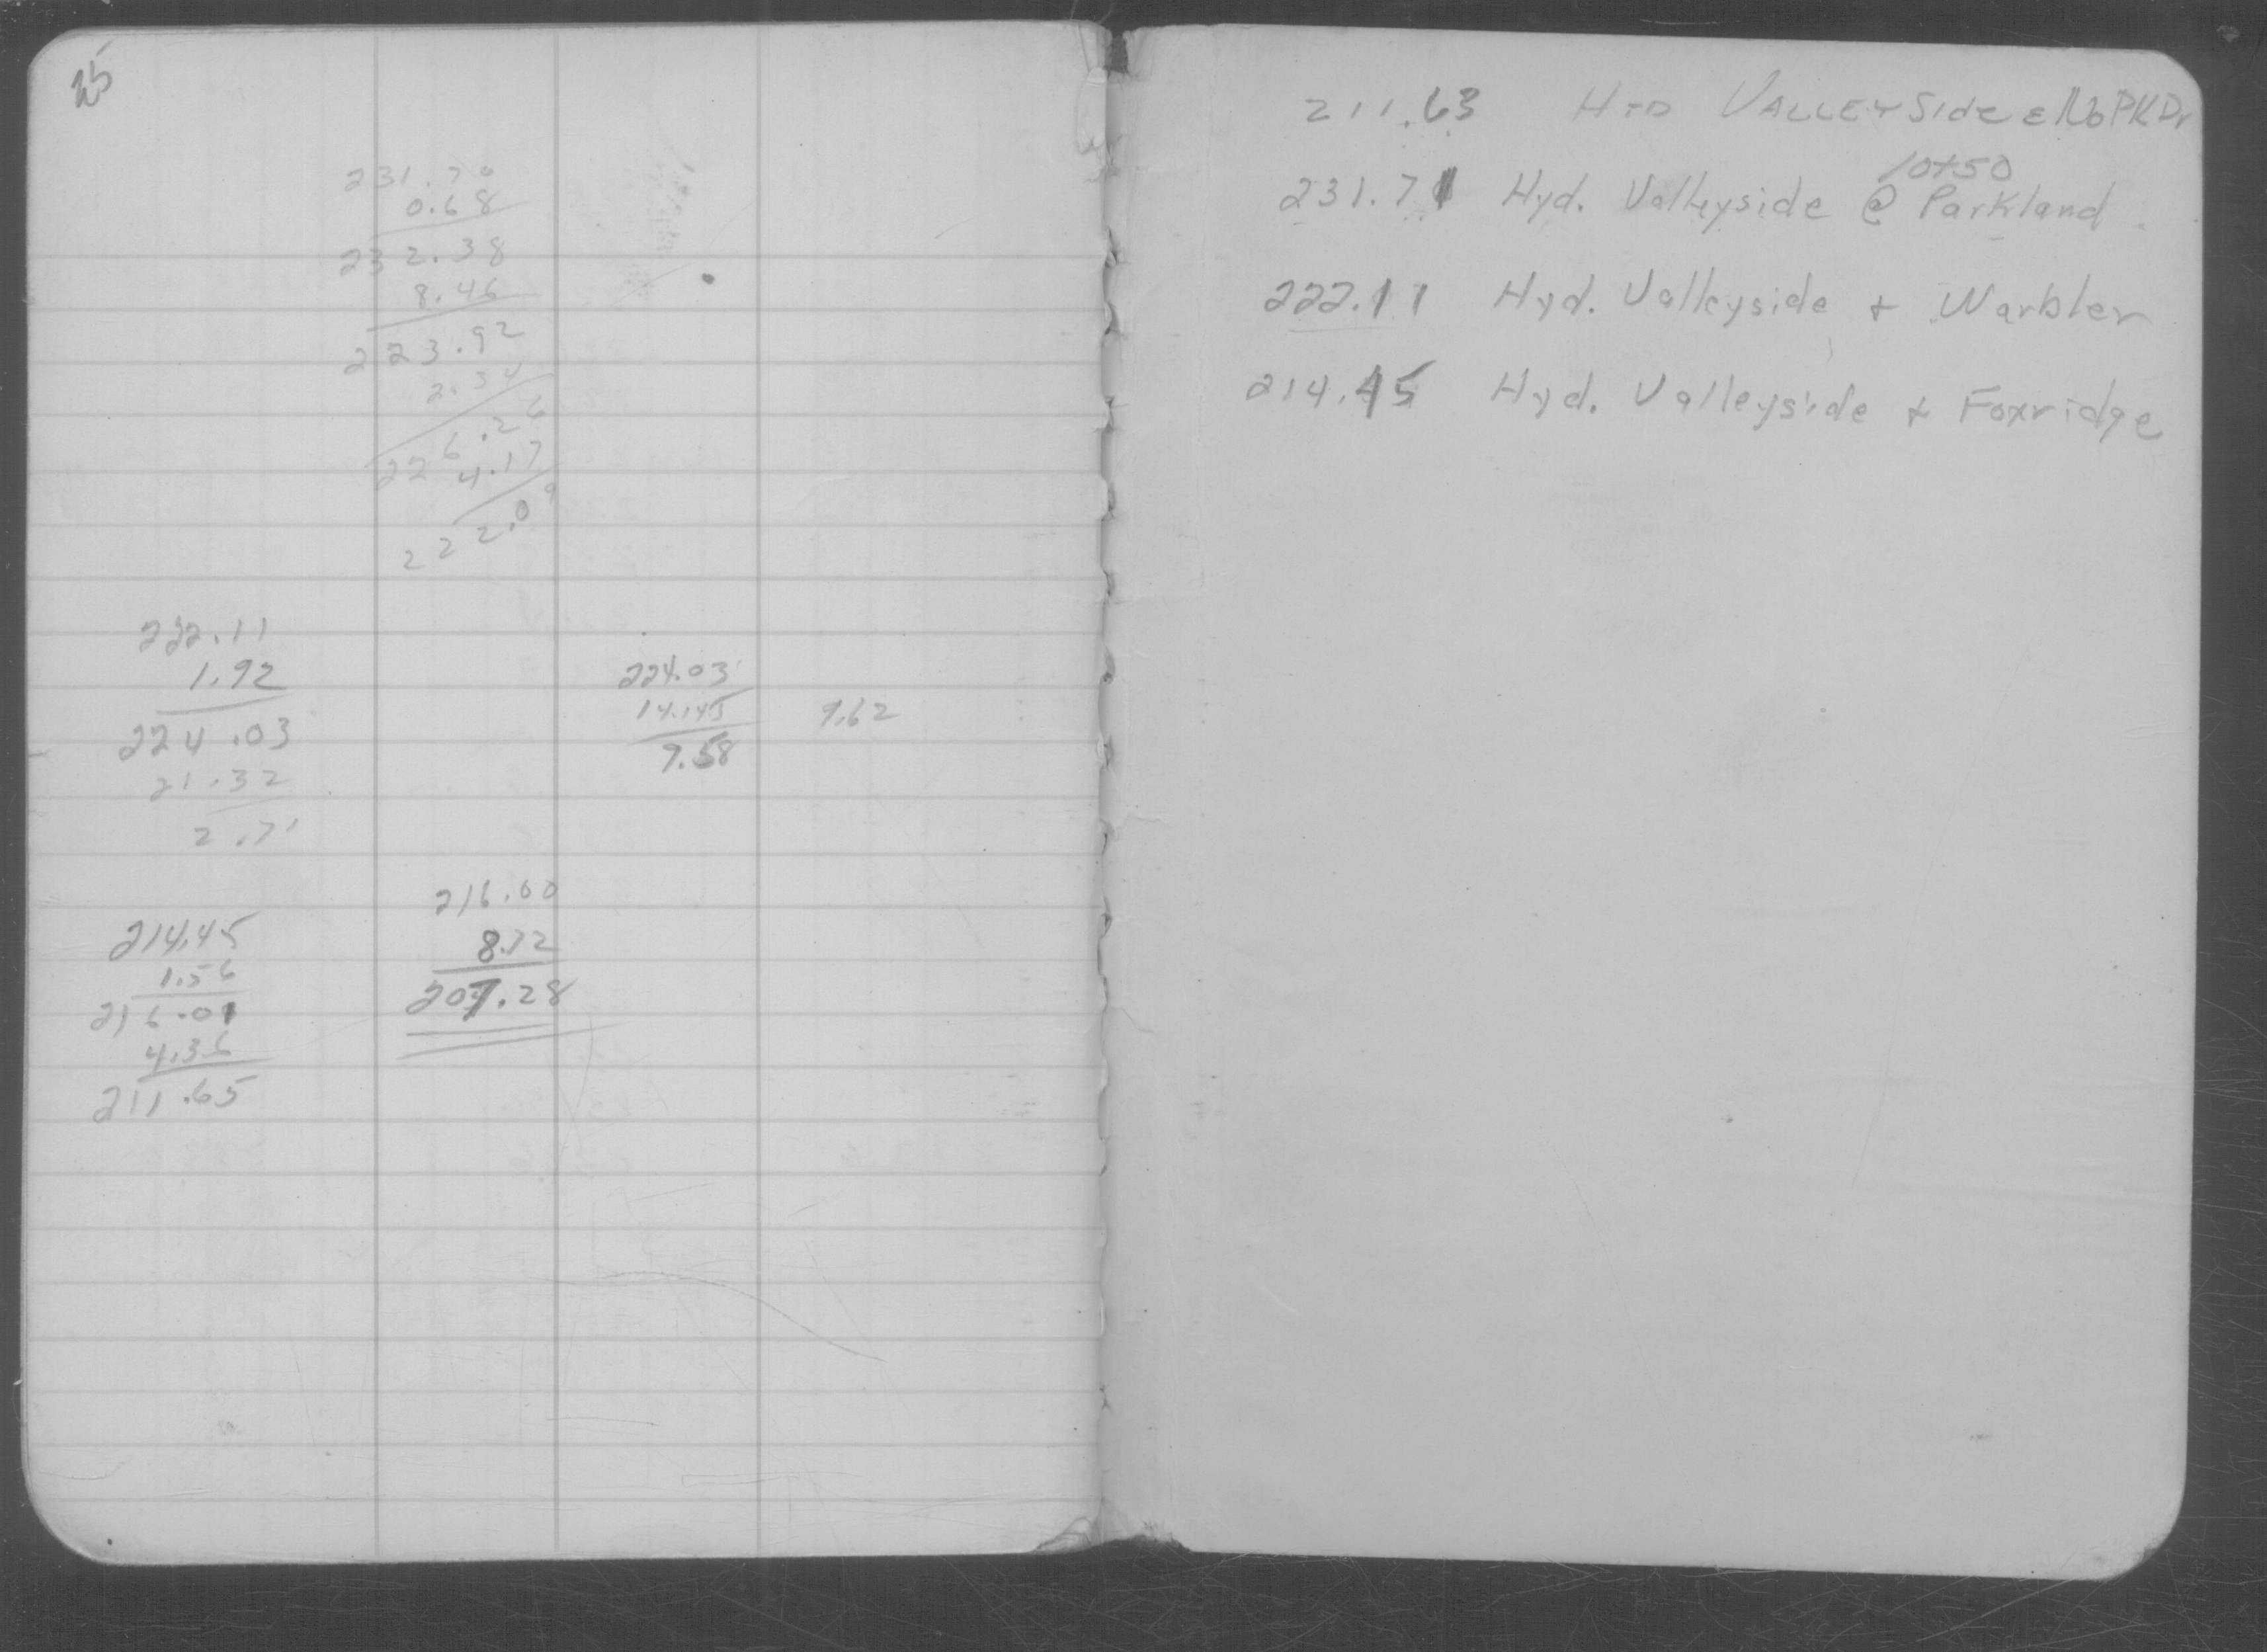 25
231.70
0.68
232.38
8.46
223.92
2.34
226.26
4.17
222.09
222.11
1.92
224.03
21.32
2.71
224.03
14.45
9.58
9.62
214.45
1.56
216.01
4.36
211.65
216.00
8.72
207.28
211.63 HYD VALLEYSIDE & No PK Dr
10+50
231.71 Hyd. Valleyside @ Parkland
222.11 Hyd. Valleyside + Warbler
214.45 Hyd. Valleyside + Foxridge